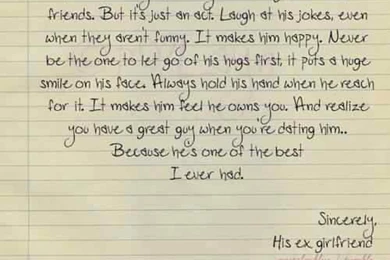 friends. But it's just an act. Laugh at his jokes, even
when they aren't funny. It makes him happy. Never
be the one to let go of his hugs first, it puts a huge
smile on his face. Always hold his hand when he reach
for it. It makes him feel he owns you. And realize
you have a great guy when you're dating him..
Because he's one of the best
I ever had.
Sincerely,
His ex girlfriend